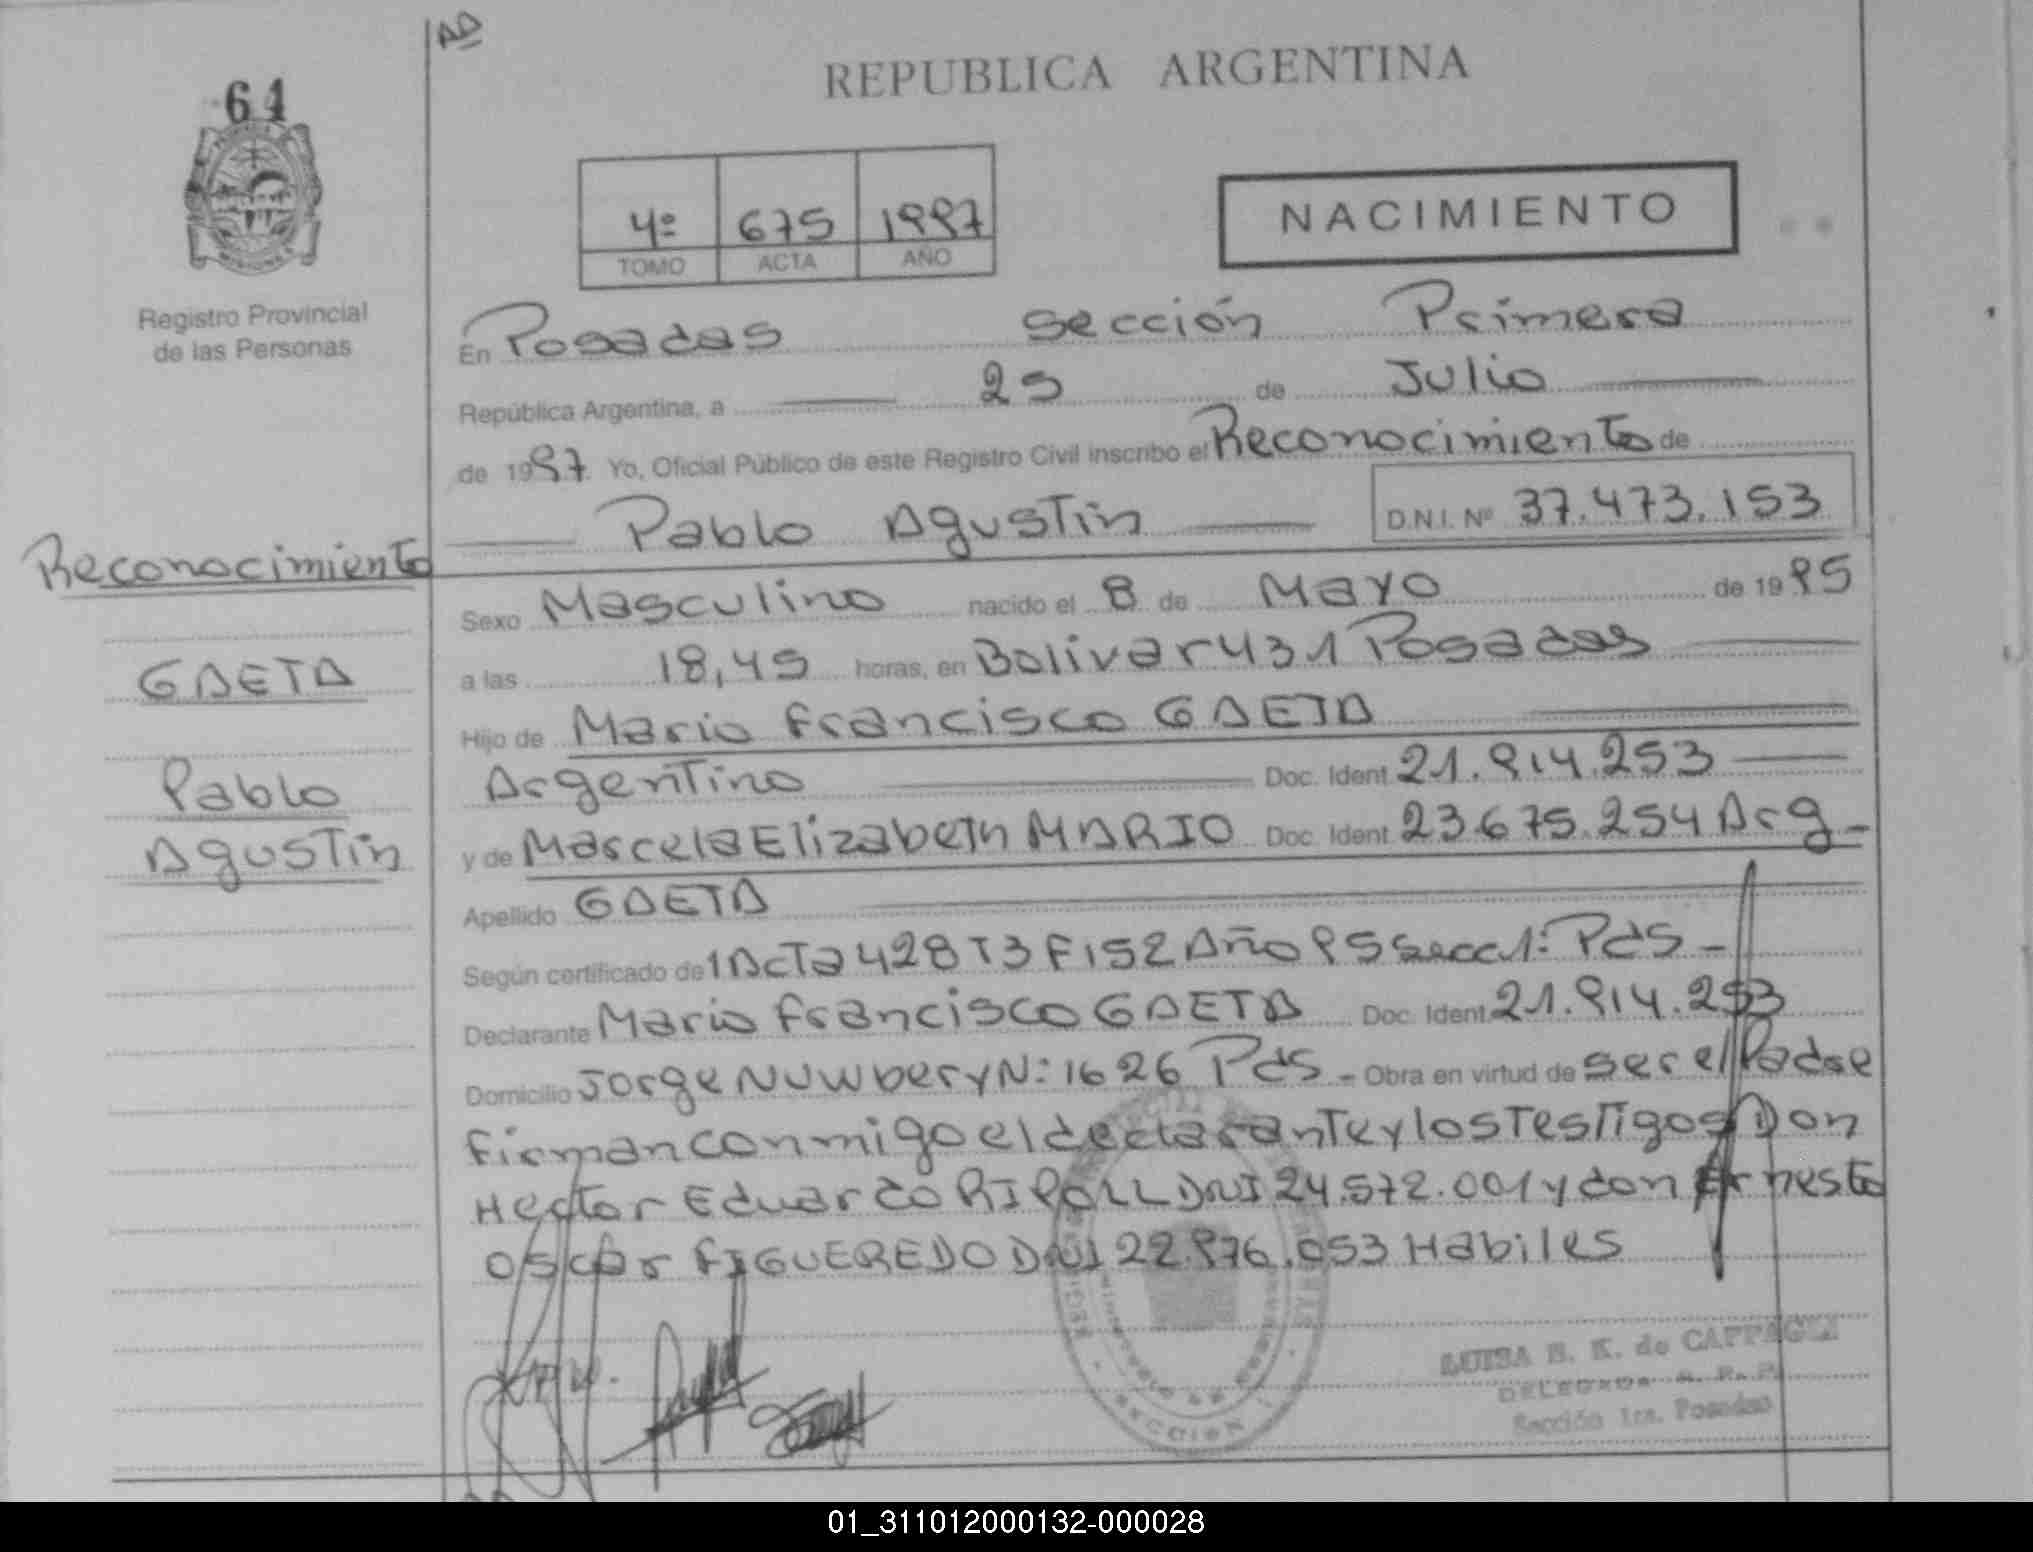 AD
REPUBLICA ARGENTINA
64
4º 675 1997
TOMO ACTA AÑO
NACIMIENTO
MISIONES
Registro Provincial
de las Personas
En Posadas Sección Primera
República Argentina, a 25 de Julio
de 1997. Yo, Oficial Público de este Registro Civil inscribo el Reconocimiento de
Pablo Agustin D.N.I. Nº 37.473.153
Reconocimiento
GAETA
Pablo
Agustin
Sexo Masculino nacido el 8 de Mayo de 1995
a las 18,45 horas, en Bolivar 431 Posadas
Hijo de Mario Francisco GAETA
Argentino Doc. Ident. 21.914.253
y de Marcela Elizabeth MARIO Doc. Ident. 23.675.254 Arg_
Apellido GAETA
Según certificado de 1 Acta 428 T3 F152 Año 95 Secc 1: Pds -
Declarante Mario Francisco GAETA Doc. Ident. 21.914.253
Domicilio Jorge Nuwbery N: 1626 Pds - Obra en virtud de ser el Padre
firman conmigo el declarante y los Testigos Don
Hector Eduardo RIPOLL DNI 24.572.001 y don Ernesto
Oscar FIGUEREDO DNI 22.976.053 Habiles
LUISA B. K. de
DELEGADA R. P. P.
Sección 1ra. Posadas
SECCION 1
01_311012000132-000028